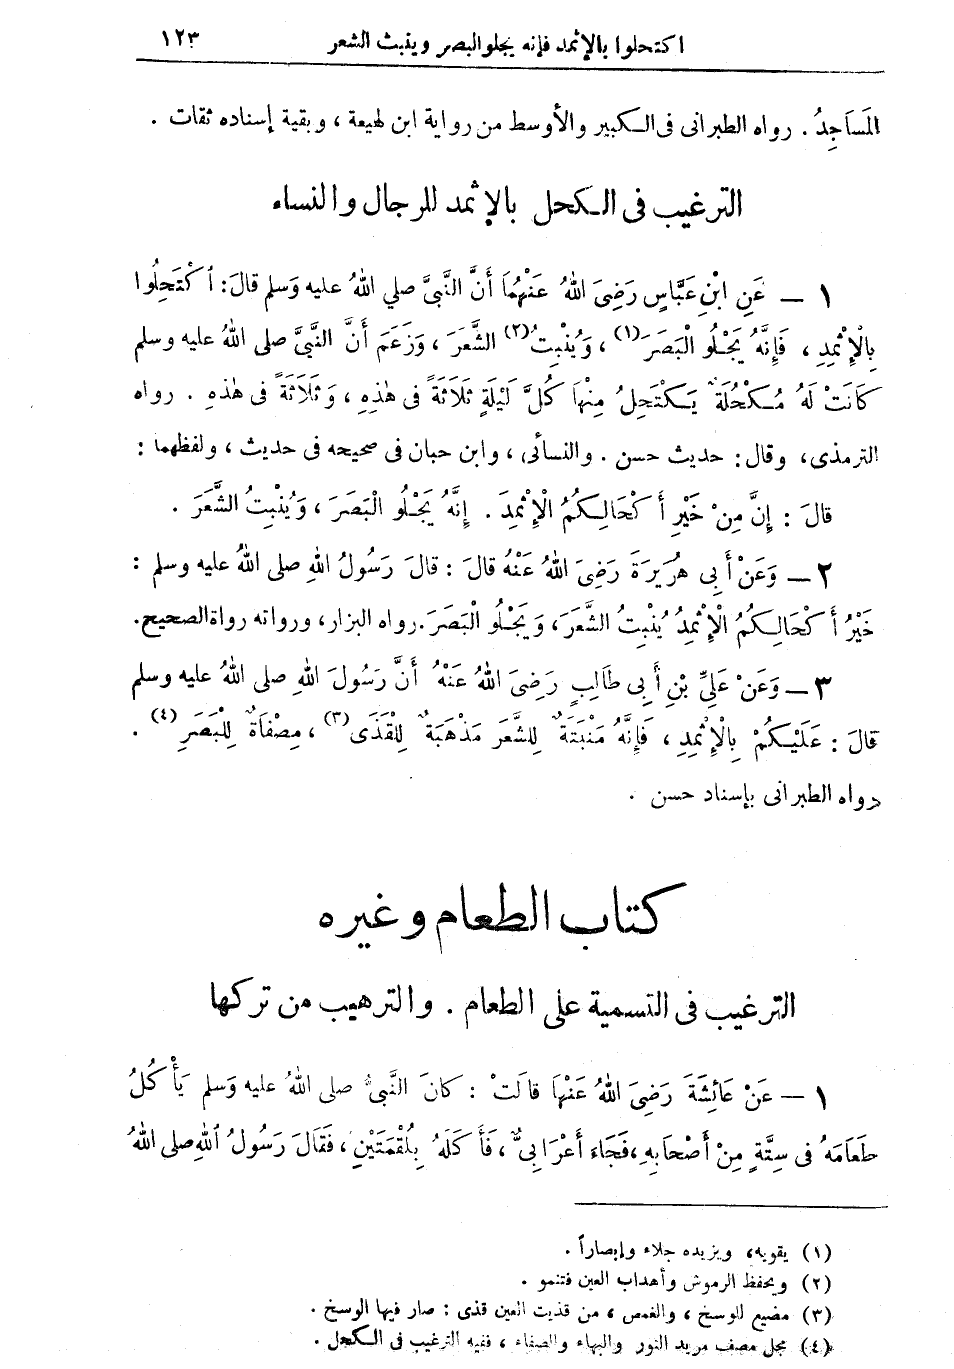 اكتحلوا بالإثمد فإنه يجلو البصر وينبث الشعر ١٢٣
المَسَاجِدُ . رواه الطبرانى فى الكبير والأوسط من رواية ابن لهيعة ، وبقية إسناده ثقات .
الترغيب فى الكحل بالإثمد للرجال والنساء
١ — عَنِ ابْنِ عَبَّاسٍ رَضِىَ اللهُ عَنْهُمَا أَنَّ النَّبِىَّ صلي اللهُ عليه وَسَلم قالَ: اُكْتَحِلُوا
بِالْإِثْمِدِ ، فَإِنَّهُ يَجْلُو الْبَصَرَ (١) ، وَيُنْبِتُ (٢) الشَّعَرَ ، وَزَعَمَ أَنَّ النَّبِىَّ صلى اللهُ عليه وسلم
كَانَتْ لَهُ مُكْحُلَةٌ يَكْتَحِلُ مِنْهَا كُلَّ لَيْلَةٍ ثَلَاثَةً فى هٰذِهِ ، وَثَلَاثَةً فى هٰذِهِ . رواه
الترمذى، وقال : حديث حسن . والنسائى ، وابن حبان فى صحيحه فى حديث ، ولفظهما :
قالَ : إِنَّ مِنْ خَيْرِ أَكْحَالِكُمُ الْإِثْمِدَ . إِنَّهُ يَجْلُو الْبَصَرَ ، وَيُنْبِتُ الشَّعَرَ .
٢ — وَعَنْ أَبِى هُرَيرَةَ رَضِىَ اللهُ عَنْهُ قالَ : قالَ رَسُولُ اللهِ صلى اللهُ عليه وسلم :
خَيْرُ أَكْحَالِكُمُ الْإِثْمِدُ يُنْبِتُ الشَّعَرَ، وَيَجْلُو الْبَصَرَ. رواه البزار، ورواته رواة الصحيح.
٣ — وَعَنْ عَلِيِّ بْنِ أَبِى طَالِبٍ رَضِىَ اللهُ عَنْهُ أَنَّ رَسُولَ اللهِ صلى اللهُ عليه وسلم
قالَ : عَلَيْكُمْ بِالْإِثْمِدِ ، فَإِنَّهُ مَنْبَتَةٌ لِلشَّعَرِ مَذْهَبَةٌ لِلْقَذَى (٣) ، مِصْفَاةٌ لِلْبَصَرِ (٤) .
رواه الطبرانى بإسناد حسن .
كتاب الطعام وغيره
الترغيب فى التسمية على الطعام . والترهيب من تركها
١ — عَنْ عَائِشَةَ رَضِىَ اللهُ عَنْهَا قالَتْ : كانَ النَّبِىُّ صلى اللهُ عليه وَسلم يَأْكُلُ
طَعَامَهُ فى سِتَّةٍ مِنْ أَصْحَابِهِ، فَجَاءَ أَعْرَابِىٌّ ، فَأَكَلَهُ بِلُقْمَتَيْنِ ، فَقَالَ رَسُولُ اللهِ صلى اللهُ
(١) يقويه، ويزيده جلاء وإبصاراً .
(٢) ويحفظ الرموش وأهداب العين فتنمو .
(٣) مضيع للوسخ ، والغمص ، من قذيت العين قذى : صار فيها الوسخ .
(٤) مجل مصف مريد النور والبهاء والصفاء ، ففيه الترغيب فى الكحل .